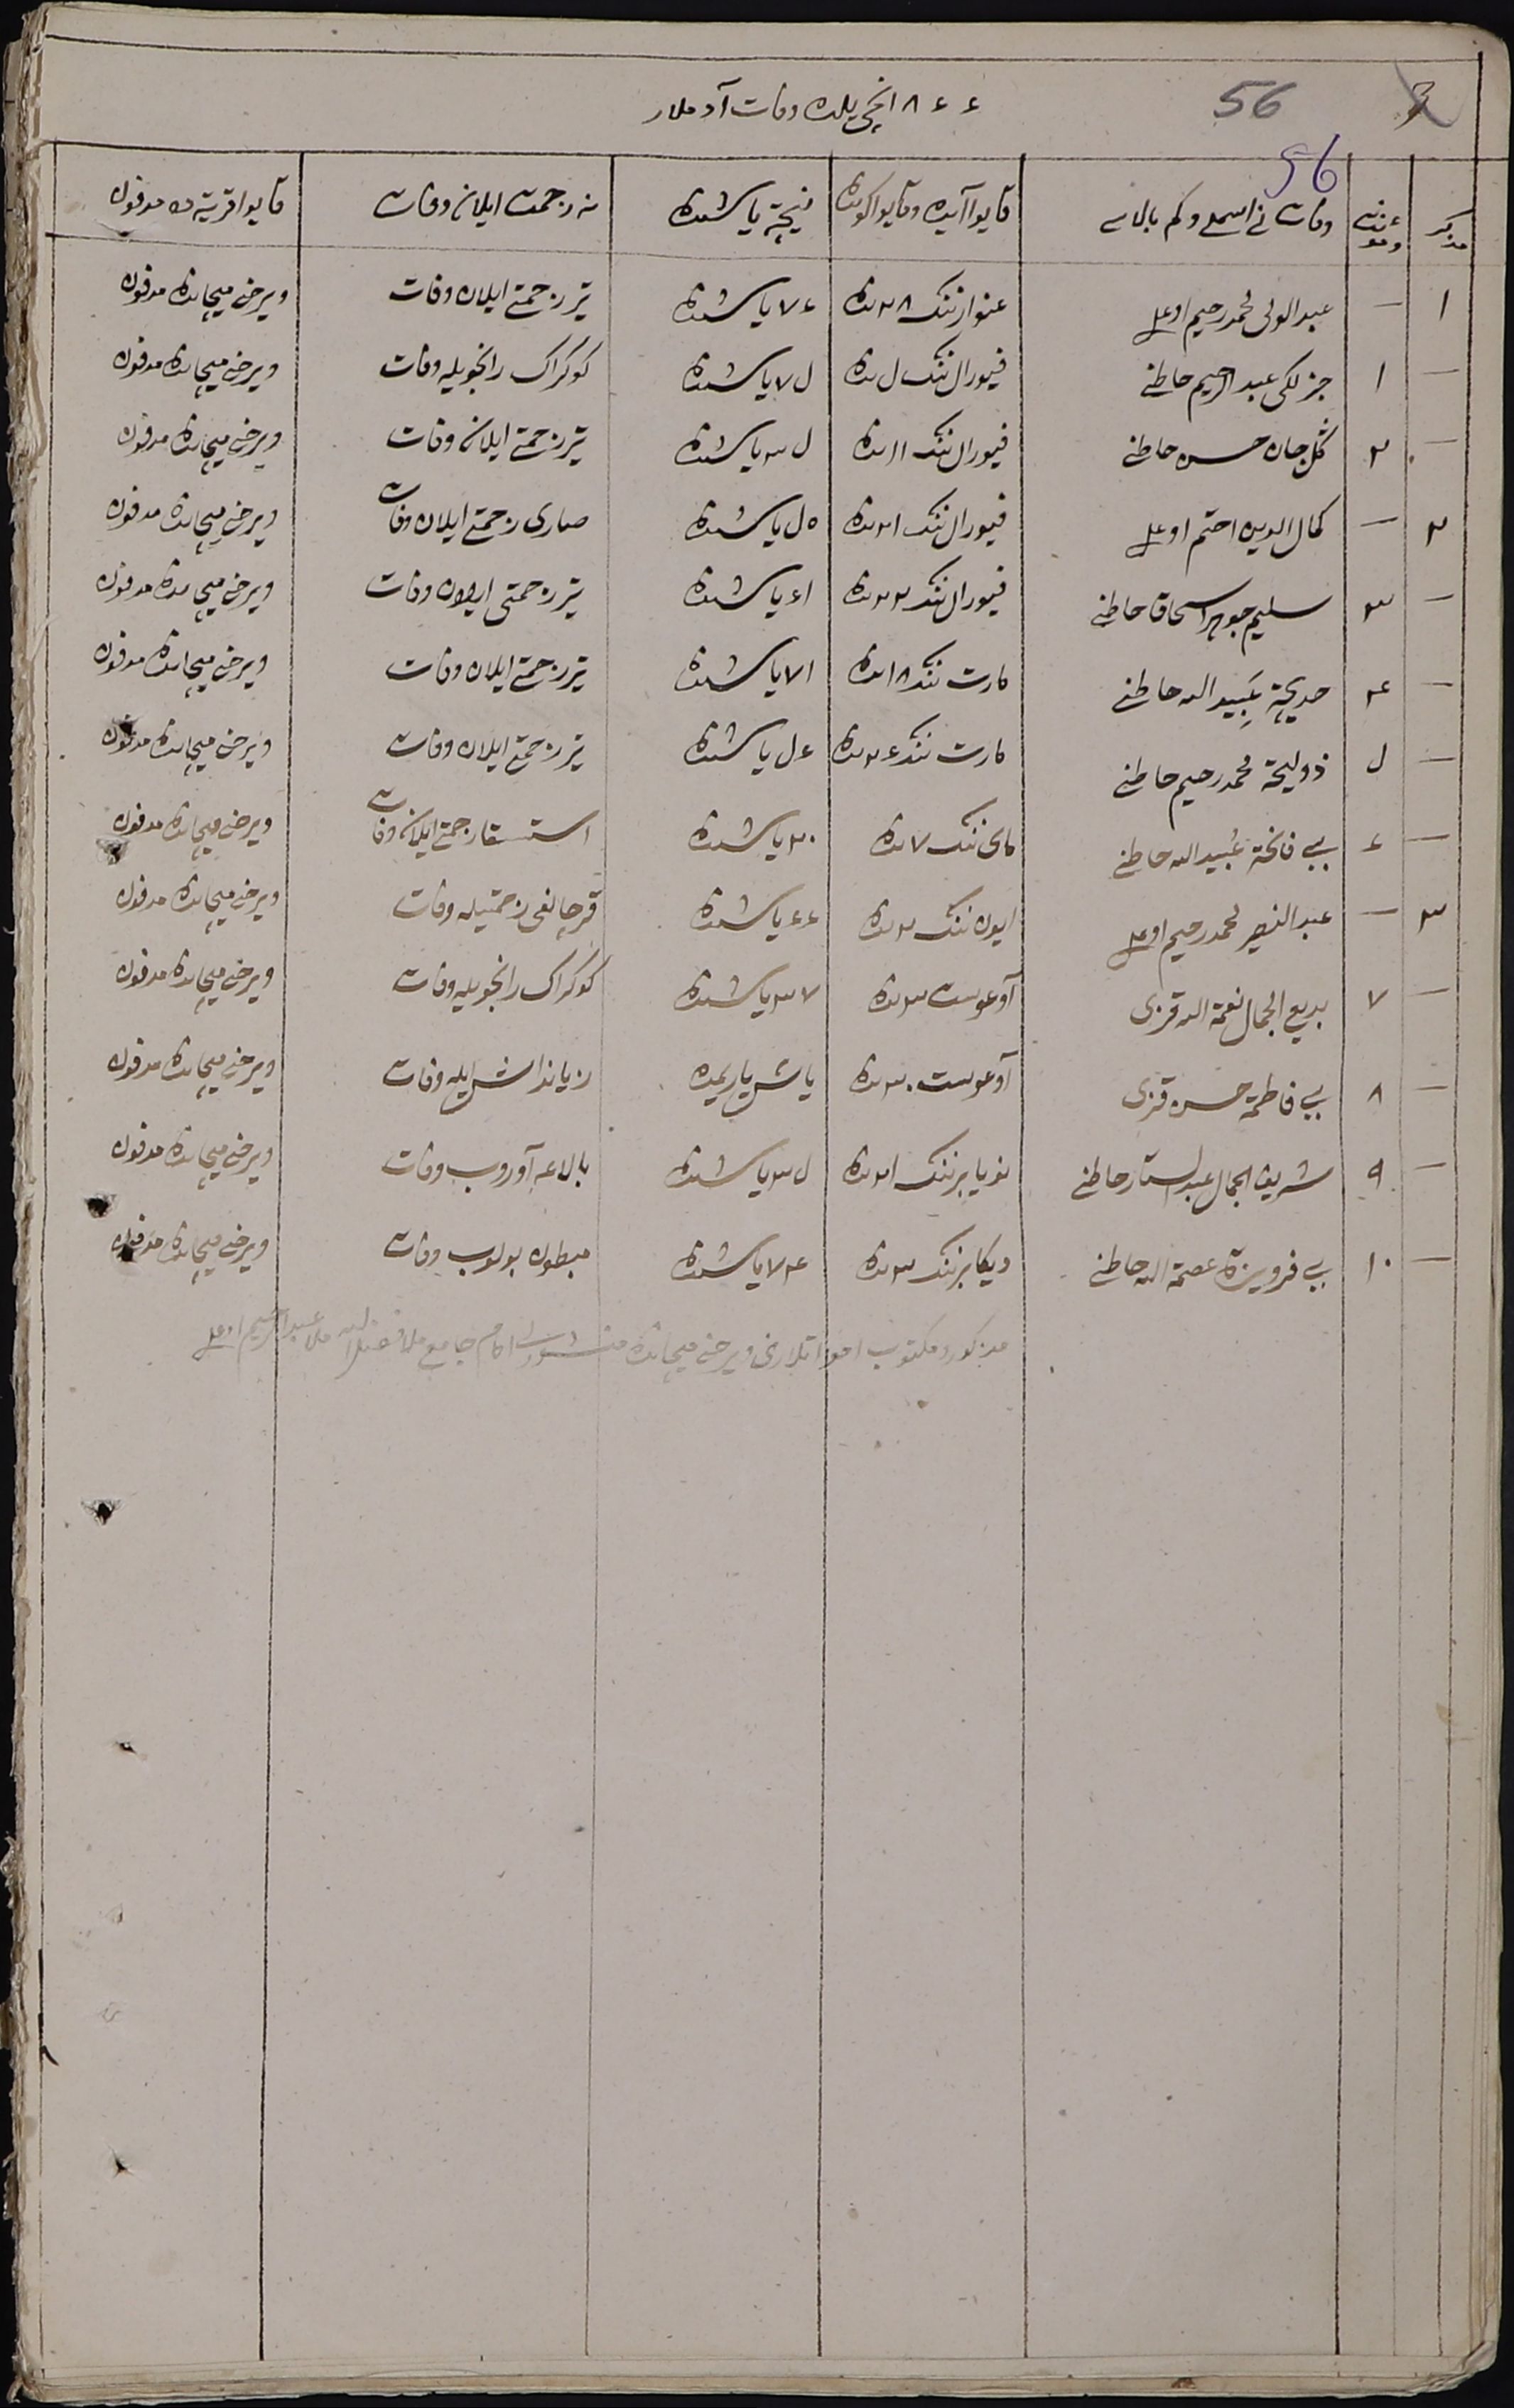 56
۱۸۶۶ انچی یلده وفات آدملار
56
مذکر	ومؤنث	وفات نی اسملی و کم بالاسی	قایو آیده و قایو کونده	نیچه یاشنده	نه زحمت ایلان وفات	قایو قریه ده مدفون
۱	—	عبدالولی محمدرحیم اوغلی	غنوارننک ۲۸ نده	۷۶ یاشنده	تیر زحمتی ایلان وفات	ویرخنی میچانده مدفون
—	۱	عبدالرحیم خاطنی	فیورال ننک ل نده	ل۷ یاشنده	کوکراک رانجویله وفات	ویرخنی میچانده مدفون
—	۲	کل جان حسن خاطنی	فیورال ننک ۱۱ نده	ل۳ یاشنده	تیر زحمتی ایلان وفات	ویرخنی میچانده مدفون
۲	—	کمال الدین احتم اوغلی	فیورال ننک ۲۱ نده	ل۵ یاشنده	صاری زحمتی ایلان وفات	ویرخنی میچانده مدفون
—	۳	سلیم جوهر اسحاق خاطنی	فیورال ننک ۲۲ نده	۶۱ یاشنده	تیر زحمتی ایلان وفات	ویرخنی میچانده مدفون
—	۴	خدیجه عبیدالله خاطنی	مارت ننک ۱۸ نده	۷۱ یاشنده	تیر زحمتی ایلان وفات	ویرخنی میچانده مدفون
—	ل	ذولیخه محمدرحیم خاطنی	مارت ننک ۲۶ نده	ل۶ یاشنده	تیر زحمتی ایلان وفات	ویرخنی میچانده مدفون
—	۶	بی فاتحه عبیدالله خاطنی	مای ننک ۷ نده	۲۰ یاشنده	استسقا زحمتی ایلان وفات	ویرخنی میچانده مدفون
۳	—	عبدالنصیر محمدرحیم اوغلی	ایون ننک ۲ نده	۶۶ یاشنده	زحمتیله وفات	ویرخنی میچانده مدفون
—	۷	بدیع الجمال نعمة الله قزی	آوغوست ۳ نده	۳۷ یاشنده	کوکراک رانجویله وفات	ویرخنی میچانده مدفون
—	۸	بی فاطمه حسن قزی	آوغوست ۳۰ نده	یاش یاریمده	زیانداش ایله وفات	ویرخنی میچانده مدفون
—	۹	شریف الجمال عبدالستار خاطنی	نویابرننک ۲۱ نده	ل۳ یاشنده	بالاغه آوروب وفات	ویرخنی میچانده مدفون
—	۱۰	بی فروزه عصمة الله خاطنی	دیکابرننک ۳ نده	۷۴ یاشنده	مبطون بولوب وفات	ویرخنی میچانده مدفون
مذکور و مکتوب امواتلارنی ویرخنی میچانده امام جامع ملا ملا عبدالرحیم اوغلی